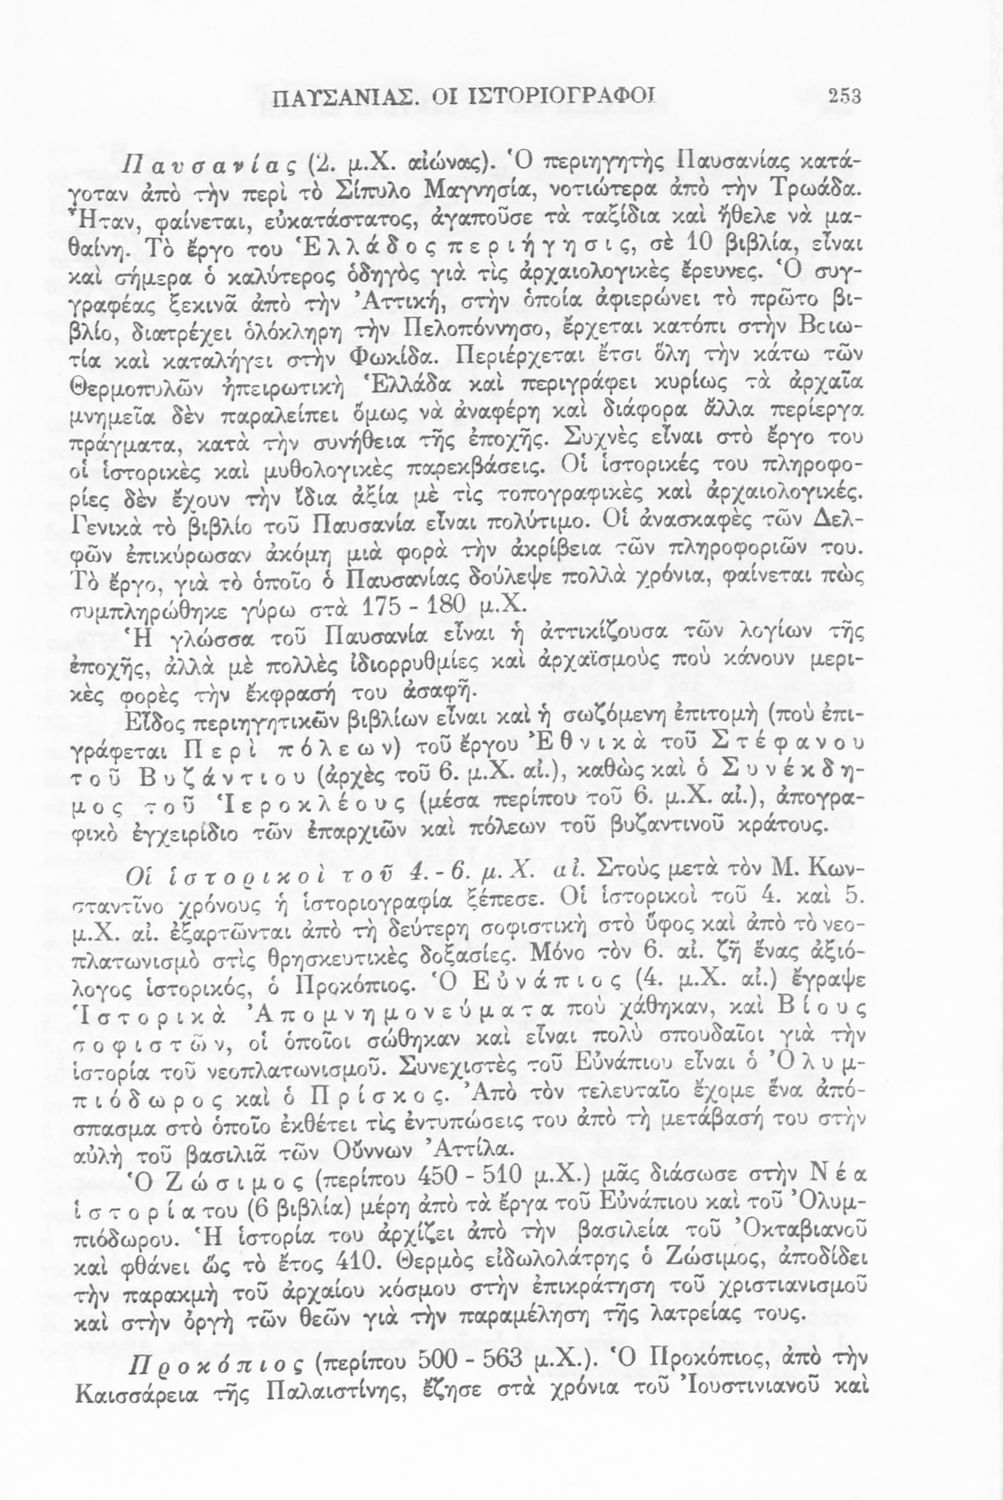 ΠΑΥΣΑΝΙΑΣ. ΟΙ ΙΣΤΟΡΙΟΓΡΑΦΟΙ 253
Παυσανίας (2. μ.Χ. αἰώνας). Ὁ περιηγητὴς Παυσανίας κατά-
γοταν ἀπὸ τὴν περὶ τὸ Σίπυλο Μαγνησία, νοτιώτερα ἀπὸ τὴν Τρωάδα.
Ἦταν, φαίνεται, εὐκατάστατος, ἀγαποῦσε τὰ ταξίδια καὶ ἤθελε νὰ μα-
θαίνη. Τὸ ἔργο του Ἑλλάδος περιήγησις, σὲ 10 βιβλία, εἶναι
καὶ σήμερα ὁ καλύτερος ὁδηγὸς γιὰ τὶς ἀρχαιολογικὲς ἔρευνες. Ὁ συγ-
γραφέας ξεκινᾶ ἀπὸ τὴν Ἀττική, στὴν ὁποία ἀφιερώνει τὸ πρῶτο βι-
βλίο, διατρέχει ὁλόκληρη τὴν Πελοπόννησο, ἔρχεται κατόπι στὴν Βοιω-
τία καὶ καταλήγει στὴν Φωκίδα. Περιέρχεται ἔτσι ὅλη τὴν κάτω τῶν
Θερμοπυλῶν ἠπειρωτικὴ Ἑλλάδα καὶ περιγράφει κυρίως τὰ ἀρχαῖα
μνημεῖα δὲν παραλείπει ὅμως νὰ ἀναφέρη καὶ διάφορα ἄλλα περίεργα
πράγματα, κατὰ τὴν συνήθεια τῆς ἐποχῆς. Συχνὲς εἶναι στὸ ἔργο του
οἱ ἱστορικὲς καὶ μυθολογικὲς παρεκβάσεις. Οἱ ἱστορικές του πληροφο-
ρίες δὲν ἔχουν τὴν ἴδια ἀξία μὲ τὶς τοπογραφικὲς καὶ ἀρχαιολογικές.
Γενικὰ τὸ βιβλίο τοῦ Παυσανία εἶναι πολύτιμο. Οἱ ἀνασκαφὲς τῶν Δελ-
φῶν ἐπικύρωσαν ἀκόμη μιὰ φορὰ τὴν ἀκρίβεια τῶν πληροφοριῶν του.
Τὸ ἔργο, γιὰ τὸ ὁποῖο ὁ Παυσανίας δούλεψε πολλὰ χρόνια, φαίνεται πὼς
συμπληρώθηκε γύρω στὰ 175 - 180 μ.Χ.
Ἡ γλώσσα τοῦ Παυσανία εἶναι ἡ ἀττικίζουσα τῶν λογίων τῆς
ἐποχῆς, ἀλλὰ μὲ πολλὲς ἰδιορρυθμίες καὶ ἀρχαϊσμοὺς ποὺ κάνουν μερι-
κὲς φορὲς τὴν ἔκφρασή του ἀσαφῆ.
Εἶδος περιηγητικῶν βιβλίων εἶναι καὶ ἡ σωζόμενη ἐπιτομὴ (ποὺ ἐπι-
γράφεται Περὶ πόλεων) τοῦ ἔργου Ἐθνικὰ τοῦ Στέφανου
τοῦ Βυζάντιου (ἀρχὲς τοῦ 6. μ.Χ. αἰ.), καθὼς καὶ ὁ Συνέκδη-
μος τοῦ Ἱεροκλέους (μέσα περίπου τοῦ 6. μ.Χ. αἰ.), ἀπογρα-
φικὸ ἐγχειρίδιο τῶν ἐπαρχιῶν καὶ πόλεων τοῦ βυζαντινοῦ κράτους.
Οἱ ἱστορικοὶ τοῦ 4. - 6. μ.Χ. αἰ. Στοὺς μετὰ τὸν Μ. Κων-
σταντῖνο χρόνους ἡ ἱστοριογραφία ξέπεσε. Οἱ ἱστορικοὶ τοῦ 4. καὶ 5.
μ.Χ. αἰ. ἐξαρτῶνται ἀπὸ τὴ δεύτερη σοφιστικὴ στὸ ὕφος καὶ ἀπὸ τὸ νεο-
πλατωνισμὸ στὶς θρησκευτικὲς δοξασίες. Μόνο τὸν 6. αἰ. ζῆ ἕνας ἀξιό-
λογος ἱστορικός, ὁ Προκόπιος. Ὁ Εὐνάπιος (4. μ.Χ. αἰ.) ἔγραψε
Ἱστορικὰ Ἀπομνημονεύματα ποὺ χάθηκαν, καὶ Βίους
σοφιστῶν, οἱ ὁποῖοι σώθηκαν καὶ εἶναι πολὺ σπουδαῖοι γιὰ τὴν
ἱστορία τοῦ νεοπλατωνισμοῦ. Συνεχιστὲς τοῦ Εὐνάπιου εἶναι ὁ Ὀλυμ-
πιόδωρος καὶ ὁ Πρίσκος. Ἀπὸ τὸν τελευταῖο ἔχομε ἕνα ἀπό-
σπασμα στὸ ὁποῖο ἐκθέτει τὶς ἐντυπώσεις του ἀπὸ τὴ μετάβασή του στὴν
αὐλὴ τοῦ βασιλιᾶ τῶν Οὕννων Ἀττίλα.
Ὁ Ζώσιμος (περίπου 450 - 510 μ.Χ.) μᾶς διάσωσε στὴν Νέα
ἱστορία του (6 βιβλία) μέρη ἀπὸ τὰ ἔργα τοῦ Εὐνάπιου καὶ τοῦ Ὀλυμ-
πιόδωρου. Ἡ ἱστορία του ἀρχίζει ἀπὸ τὴν βασιλεία τοῦ Ὀκταβιανοῦ
καὶ φθάνει ὣς τὸ ἔτος 410. Θερμὸς εἰδωλολάτρης ὁ Ζώσιμος, ἀποδίδει
τὴν παρακμὴ τοῦ ἀρχαίου κόσμου στὴν ἐπικράτηση τοῦ χριστιανισμοῦ
καὶ στὴν ὀργὴ τῶν θεῶν γιὰ τὴν παραμέληση τῆς λατρείας τους.
Προκόπιος (περίπου 500 - 563 μ.Χ.). Ὁ Προκόπιος, ἀπὸ τὴν
Καισσάρεια τῆς Παλαιστίνης, ἔζησε στὰ χρόνια τοῦ Ἰουστινιανοῦ καὶ